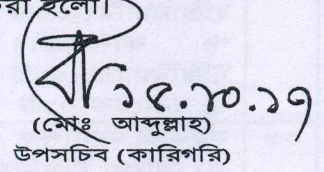 করা হলো।
১৫.১০.১৭
(মোঃ আব্দুল্লাহ)
উপসচিব (কারিগরি)